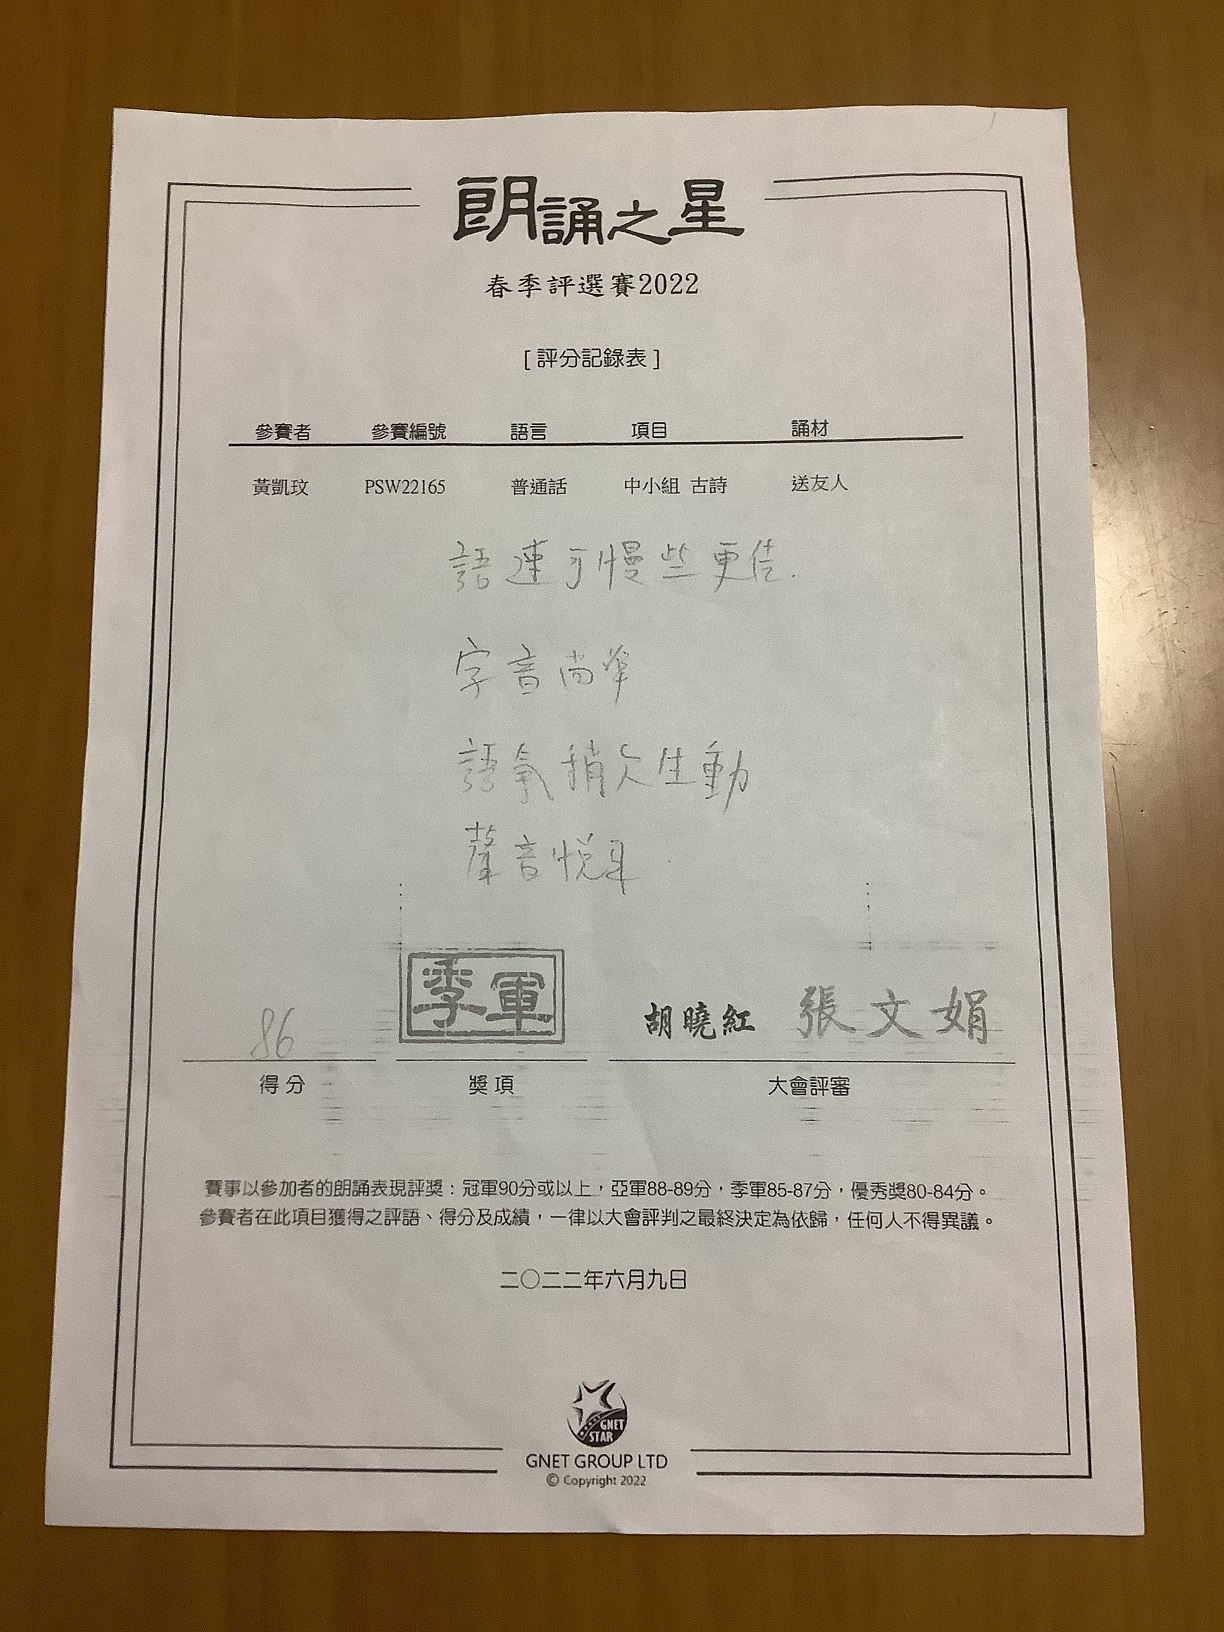 朗誦之星
春季評選賽2022
[ 評分記錄表 ]
參賽者 參賽編號 語言 項目 誦材
黃凱玟 PSW22165 普通話 中小組 古詩 送友人
語速可慢些更佳.
字音尚準
語氣稍欠生動
聲音悅耳.
86 季軍 胡曉紅 張文娟
得分 獎項 大會評審
賽事以參加者的朗誦表現評獎：冠軍90分或以上，亞軍88-89分，季軍85-87分，優秀獎80-84分。
參賽者在此項目獲得之評語、得分及成績，一律以大會評判之最終決定為依歸，任何人不得異議。
二〇二二年六月九日
GNET
STAR
GNET GROUP LTD
© Copyright 2022